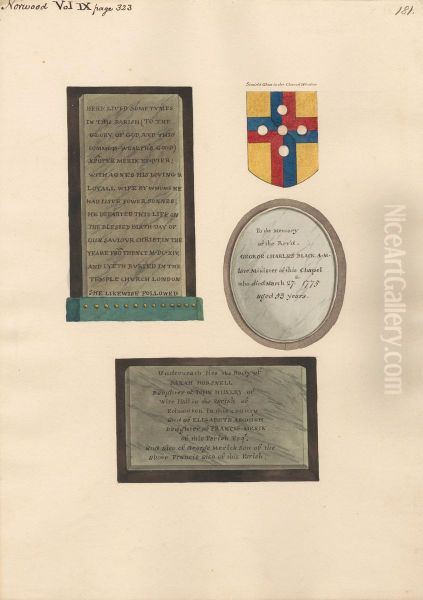 Norwood Vol IX page 323
181.
Stained Glass in the Chancel Window
HERE LIVED SOMETYMES
IN THIS PARISH (TO THE
GLORY OF GOD, AND THIS
COMMON-WEALTHS GOOD)
MERIK ESQVIER;
WITH AGNES HIS LOVING &
LOYALL WIFE BY WHOME HE
HAD ISSVE FOWER SONNES:
HE DEPARTED THIS LIFE ON
THE BLESSED BIRTH DAY OF
OUR SAVIOUR CHRIST IN THE
YEARE
AND LYETH BURIED IN THE
TEMPLE CHURCH LONDON
SHE LIKEWISE FOLLOWED
To the Memory
of the Revd.
GEORGE CHARLES BLACK A.M.
late Minister of this Chapel
who died March 27th 1775
aged 53 years.
Underneath lies the Body of
SARAH
Daughter of JOHN HUXLEY of
Wire Hall in the Parish of
Edmonton in this County
and of ELIZABETH
Daughter of FRANCIS MERIK
of this Parish Esqr.
And also of George Merick Son of the
Above Francis also of this Parish
NiceArtGallery.com